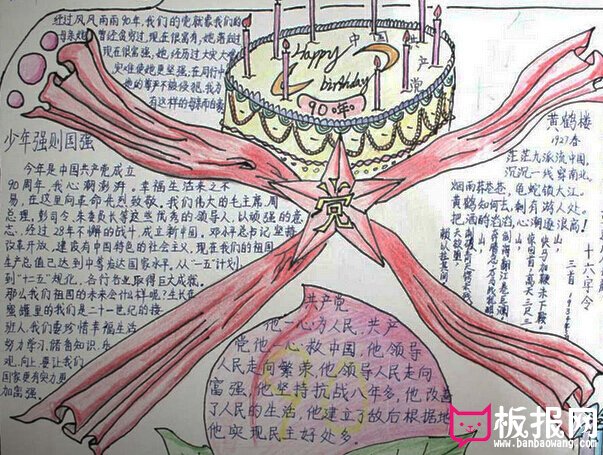 经过风风雨雨90年,我们的党就像我们的
现在很富强,她经历过大灾大难
有这样的母亲而
Happy
birthday
90年
中国共产党
党
少年强则国强
今年是中国共产党成立
90周年,我心潮澎湃。幸福生活来之不
易,在这里向革命先烈致敬。我们伟大的毛主席,周
总理,彭司令,朱委员长等这些优秀的领导人,以顽强的意
志,经过28年不懈的战斗成立新中国。邓小平总书记坚持
改革开放,建设有中国特色的社会主义,现在我们的祖国
生产总值已达到中等发达国家水平,从“一五”计划
到“十二五”规化,各行各业取得巨大成就。
那么我们祖国的未来会什么样呢?生长在
蜜罐里的我们是二十一世纪的接
班人,我们要珍惜幸福生活
努力学习,储备知识,乐
观,向上,要让我们
国家更有实力更
加富强。
黄鹤楼
1927春
茫茫九派流中国,
沉沉一线穿南北。
烟雨莽苍苍,龟蛇锁大江。
黄鹤知何去,剩有游人处。
把酒酹滔滔,心潮逐浪高!
十六字令
三首
山,
快马加鞭未下鞍,
离天三尺三
山,
山,
共产党
他一心为人民,共产
党他一心救中国,他领导
人民走向繁荣,他领导人民走向
富强,他坚持抗战八年多,他改善
了人民的生活,他建立了敌后根据地
他实现民主好处多。
板报网
www.banbaowang.com